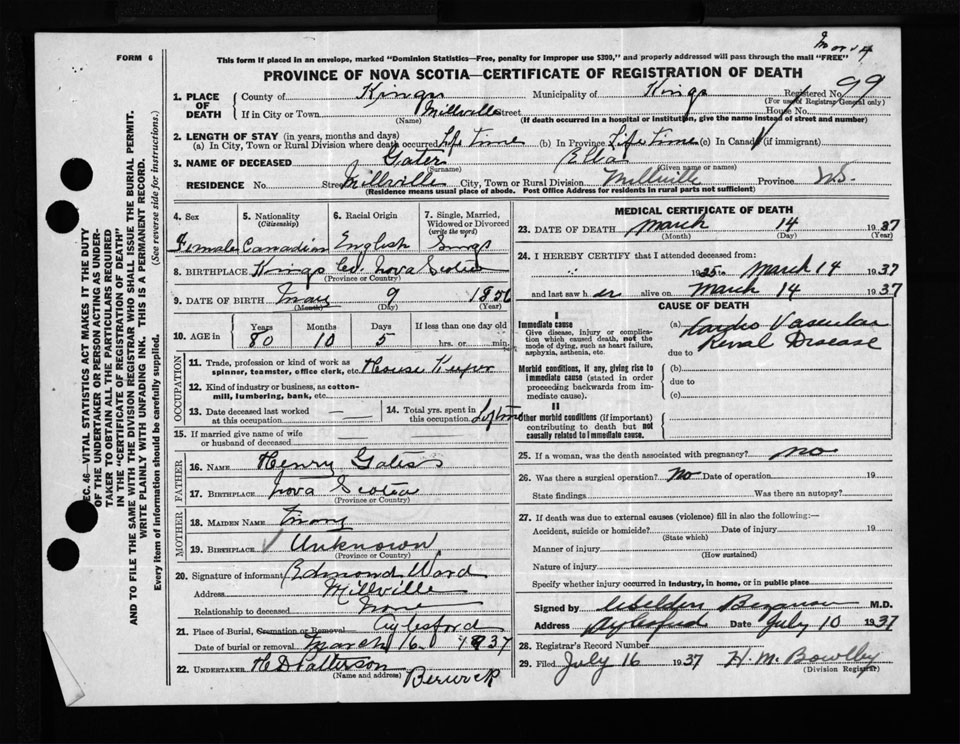 Mar 14
FORM 6
This form if placed in an envelope, marked "Dominion Statistics—Free, penalty for improper use $300," and properly addressed will pass through the mail "FREE"
PROVINCE OF NOVA SCOTIA—CERTIFICATE OF REGISTRATION OF DEATH
SEC. 46—VITAL STATISTICS ACT MAKES IT THE DUTY
OF THE UNDERTAKER OR PERSON ACTING AS UNDER-
TAKER TO OBTAIN ALL THE PARTICULARS REQUIRED
IN THE "CERTIFICATE OF REGISTRATION OF DEATH"
AND TO FILE THE SAME WITH THE DIVISION REGISTRAR WHO SHALL ISSUE THE BURIAL PERMIT.
WRITE PLAINLY WITH UNFADING INK. THIS IS A PERMANENT RECORD.
Every item of information should be carefully supplied. (See reverse side for instructions.)
1. PLACE OF DEATH County of Kings Municipality of Kings Registered No. 99
(For use of Registrar General only)
If in City or Town Millville Street House No.
(Name) (If death occurred in a hospital or institution, give the name instead of street and number)
2. LENGTH OF STAY (in years, months and days)
(a) In City, Town or Rural Division where death occurred Life Time (b) In Province Life Time (c) In Canada (if immigrant)
3. NAME OF DECEASED Gates Ella
(Surname) (Given name or names)
RESIDENCE No. Street Millville City, Town or Rural Division Millville Province N.S.
(Residence means usual place of abode. Post Office Address for residents in rural parts not sufficient)
4. Sex 5. Nationality (Citizenship) 6. Racial Origin 7. Single, Married, Widowed or Divorced (write the word)
Female Canadian English Single
8. BIRTHPLACE Kings Co. Nova Scotia
(Province or Country)
9. DATE OF BIRTH May 9 1856
(Month) (Day) (Year)
10. AGE in Years Months Days If less than one day old
80 10 5 hrs. or min.
OCCUPATION
11. Trade, profession or kind of work as spinner, teamster, office clerk, etc. House Keeper
12. Kind of industry or business, as cotton-mill, lumbering, bank, etc.
13. Date deceased last worked at this occupation — —
14. Total yrs. spent in this occupation Lifetime
15. If married give name of wife or husband of deceased — —
FATHER
16. NAME Henry Gates
17. BIRTHPLACE Nova Scotia
(Province or Country)
MOTHER
18. MAIDEN NAME Mary
19. BIRTHPLACE Unknown
(Province or Country)
20. Signature of informant Edmond Ward
Address Millville
Relationship to deceased None
21. Place of Burial, Cremation or Removal Aylesford
Date of burial or removal March 16 1937
22. UNDERTAKER H D Patterson Berwick
(Name and address)
MEDICAL CERTIFICATE OF DEATH
23. DATE OF DEATH March 14 1937
(Month) (Day) (Year)
24. I HEREBY CERTIFY that I attended deceased from:
1935 to March 14 1937
and last saw her alive on March 14 1937
CAUSE OF DEATH
I
Immediate cause
Give disease, injury or complication which caused death, not the mode of dying, such as heart failure, asphyxia, asthenia, etc.
(a) Cardio Vascular
Renal Disease
due to
Morbid conditions, if any, giving rise to immediate cause (stated in order proceeding backwards from immediate cause).
(b)
due to
(c)
II
Other morbid conditions (if important) contributing to death but not causally related to immediate cause.
25. If a woman, was the death associated with pregnancy? no
26. Was there a surgical operation? no Date of operation 19
State findings Was there an autopsy?
27. If death was due to external causes (violence) fill in also the following:—
Accident, suicide or homicide? Date of injury 19
(State which)
Manner of injury
(How sustained)
Nature of injury
Specify whether injury occurred in industry, in home, or in public place
Signed by Weldon Bezanson M.D.
Address Aylesford Date July 10 1937
28. Registrar's Record Number
29. Filed July 16 1937 H. M. Bowlby
(Division Registrar)